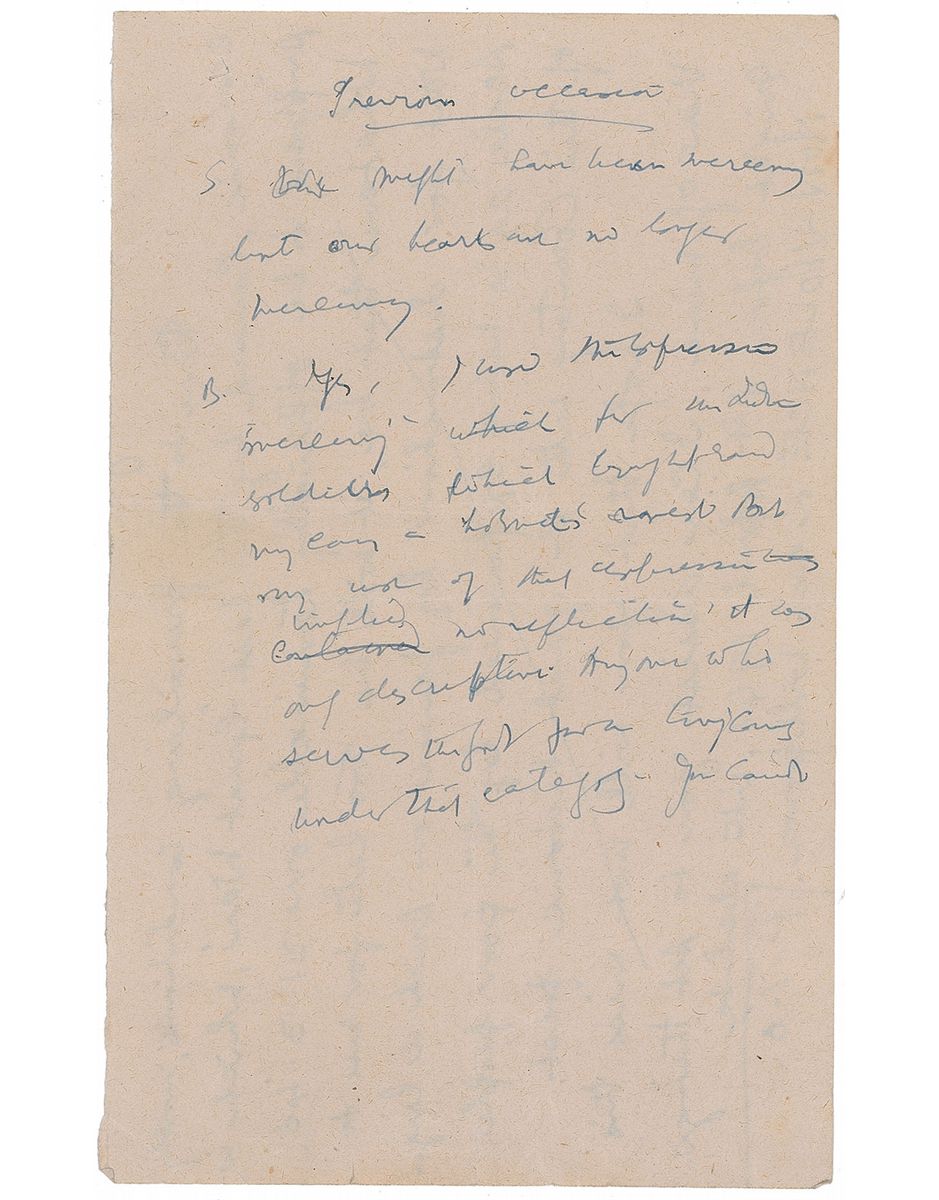 Previous occasion
S. We might have been mercenary
but our hearts are no longer
mercenary.
B. Yes, I used the expression
"mercenary" which for Indian
soldiers which brought round
my ears a hornet's nest But
my use of that expression
implied
contained no reflection it was
only descriptive. Anyone who
serves the for a living comes
under that category.